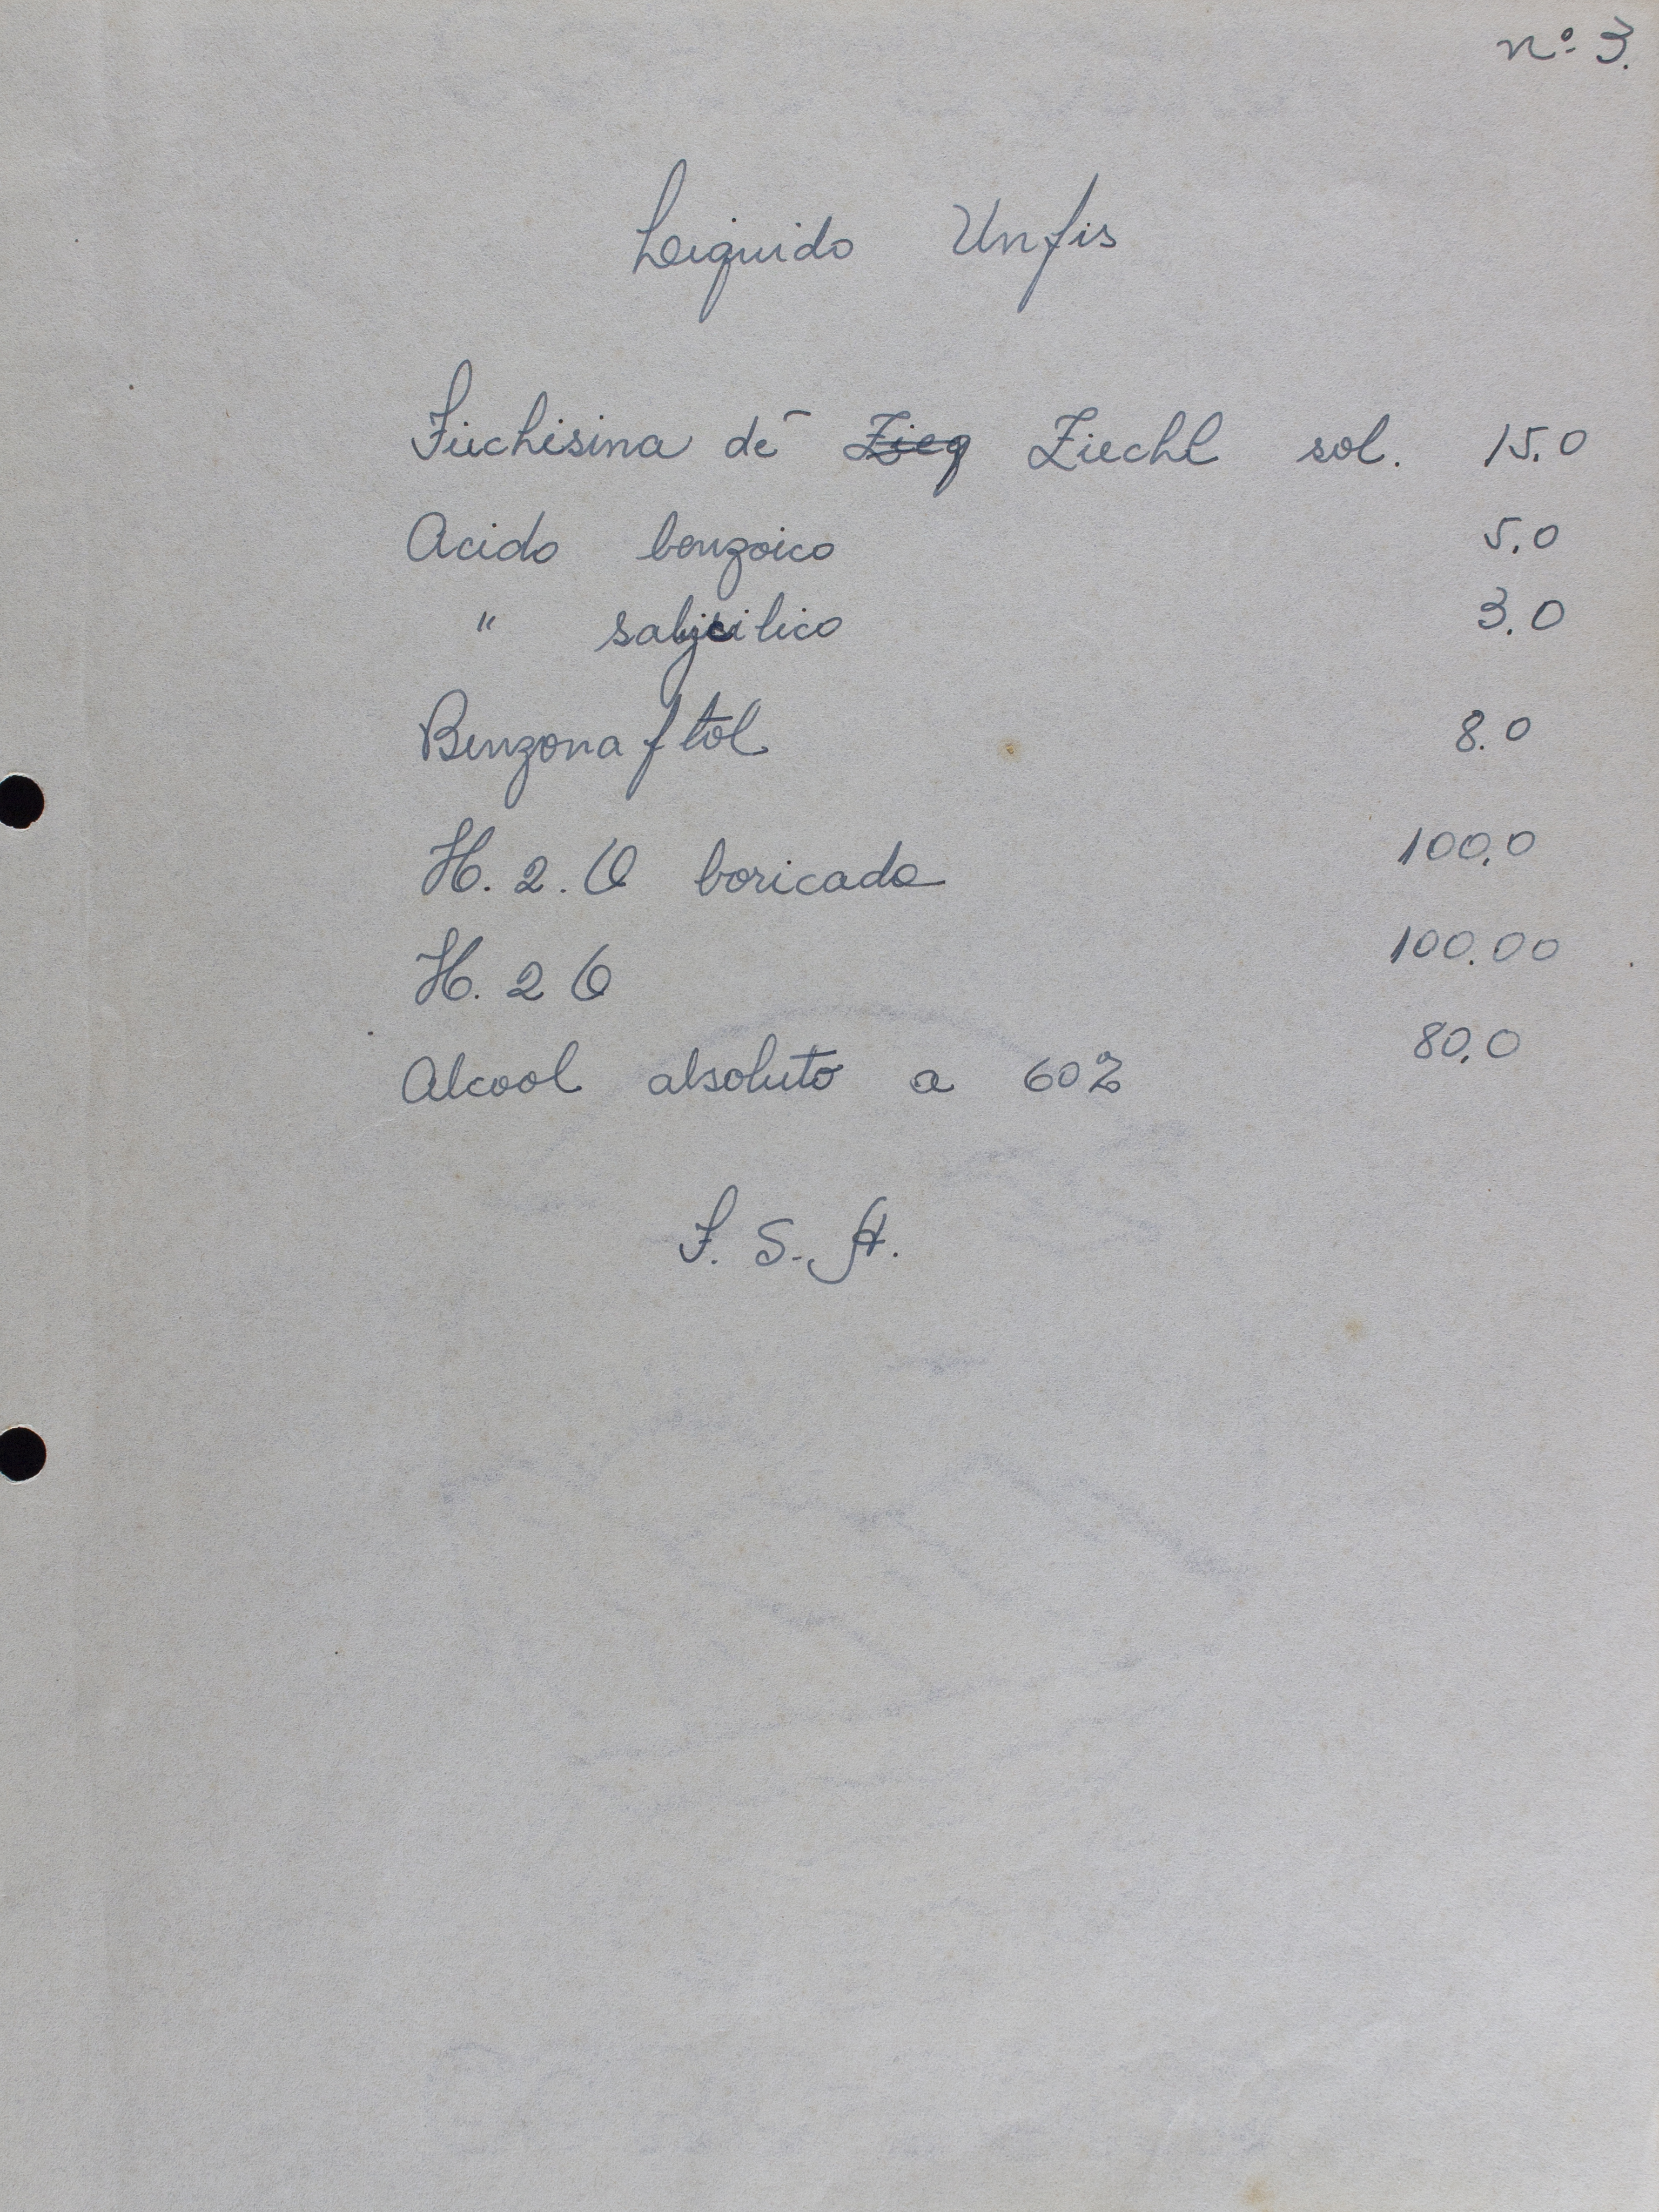 nº 3.
Liquido Unfis
Fuchisina de Zieg Ziechl sol. 15.0
Acido benzoico 5.0
" salicilico 3.0
Benzonaftol 8.0
H. 2. O boricada 100.0
H. 2 O 100.00
Alcool absoluto a 60% 80.0
F. S. A.